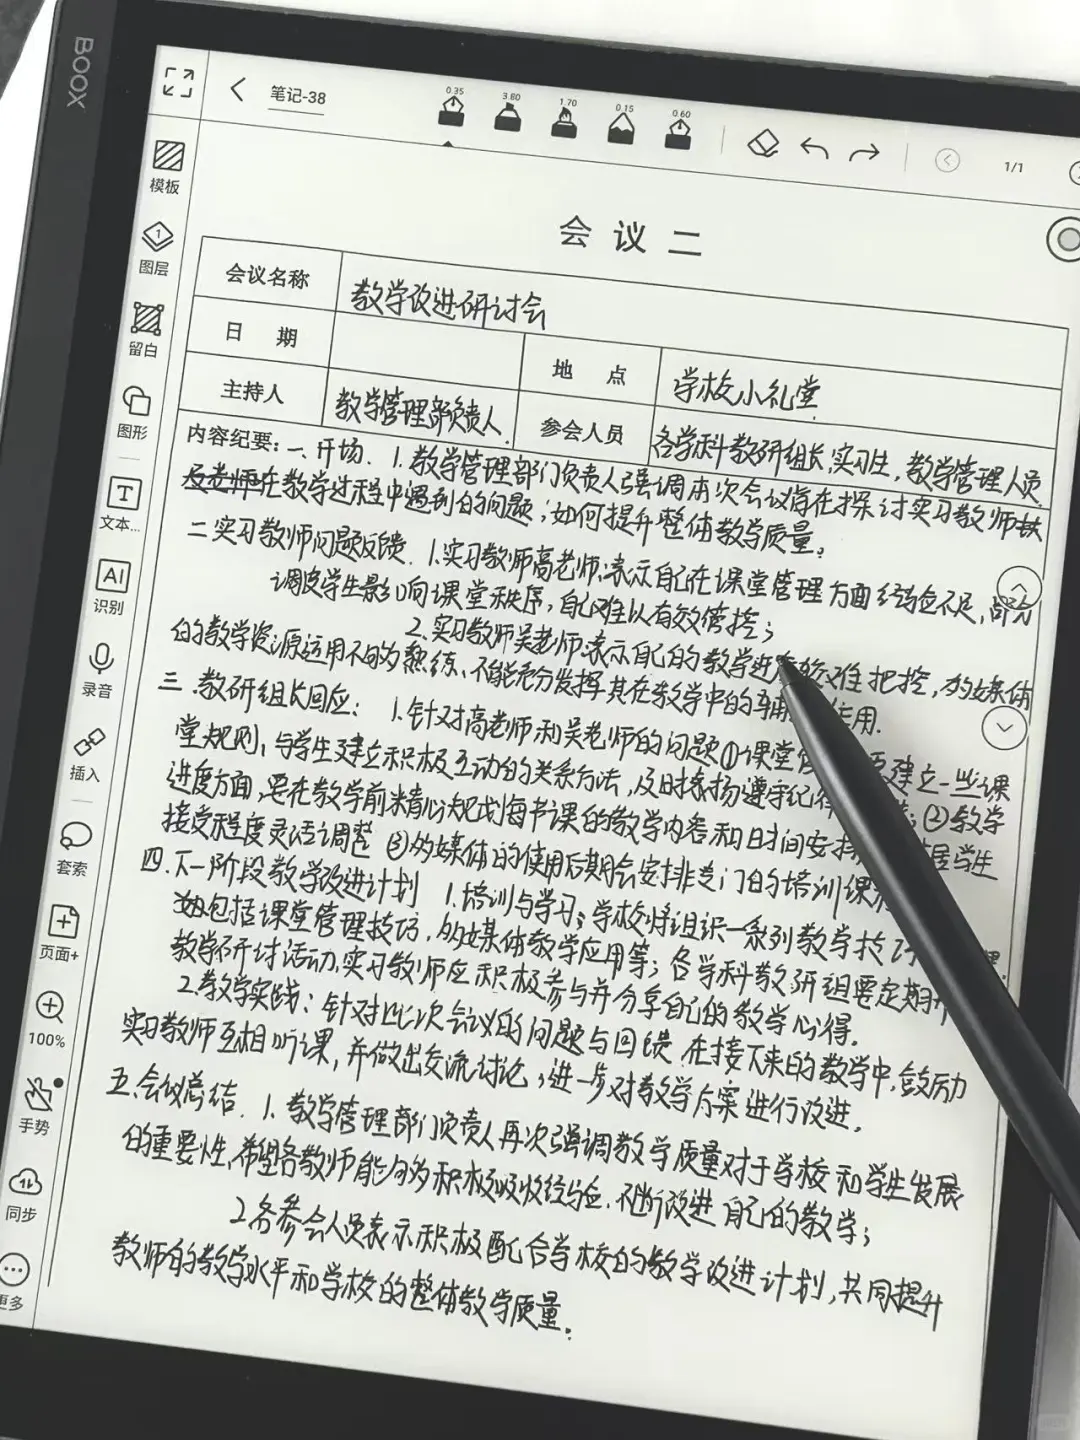 BOOX
笔记-38
0.35 3.80 1.70 0.15 0.60
1/1
模板
1
图层
留白
图形
T
文本...
AI
识别
录音
插入
套索
页面+
100%
手势
同步
更多
会议二
会议名称 教学改进研讨会
日期 地点 学校小礼堂
主持人 教学管理部负责人. 参会人员 各学科教研组长,实习生,教学管理人员.
内容纪要:一、开场. 1.教学管理部门负责人强调本次会议旨在探讨实习教师
在教学过程中遇到的问题;如何提升整体教学质量。
二实习教师问题反馈. 1.实习教师高老师:表示自己在课堂管理方面经验不足,部分
调皮学生影响课堂秩序,自己难以有效管控;
2.实习教师吴老师:表示自己的教学进 较难把控,多媒体
的教学资源运用不够熟练、不能充分发挥其在教学中的 作用.
三.教研组长回应: 1.针对高老师和吴老师的问题①课堂 建立一些课
堂规则,与学生建立积极互动的关系方法,及时表扬遵守纪律 ;②教学
进度方面,要在教学前精心规划每节课的教学内容和时间安排 握学生
接受程度灵活调整 ③多媒体的使用后期会安排专门的培训课
四.下一阶段教学改进计划 1.培训与学习;学校将组织一系列教学技
如包括课堂管理技巧,多媒体教学应用等;各学科教研组要定期
教学研讨活动,实习教师应积极参与并分享自己的教学心得.
2.教学实践:针对此次会议的问题与回馈 在接下来的教学中,鼓励
实习教师互相听课,并做出交流讨论,进一步对教学方案进行改进.
五.会议总结. 1.教学管理部门负责人再次强调教学质量对于学校和学生发展
的重要性,希望各教师能够多积极吸收经验.不断改进自己的教学;
2.各参会人员表示积极配合学校的教学改进计划,共同提升
教师的教学水平和学校的整体教学质量.